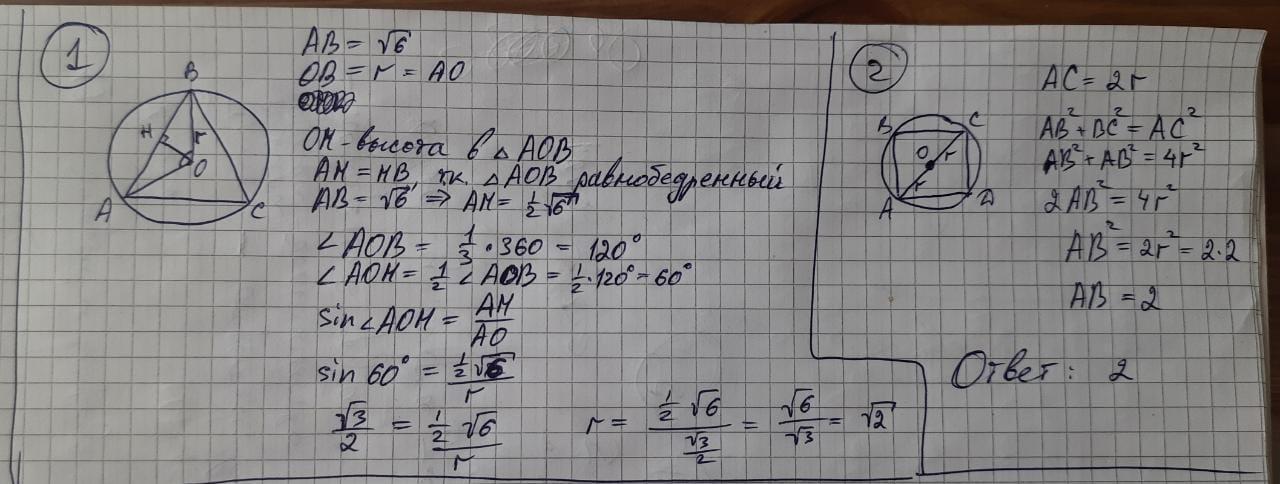 1
B
H
r
O
A
C
AB = √6
OB = r = AO
OH - высота в △AOB
AH = HB, т.к. △AOB равнобедренный
AB = √6 ⇒ AH = 1/2 √6
∠AOB = 1/3 · 360 = 120°
∠AOH = 1/2 ∠AOB = 1/2 · 120° = 60°
sin∠AOH = AH/AO
sin 60° = (1/2 √6)/r
√3/2 = (1/2 √6)/r
r = (1/2 √6)/(√3/2) = √6/√3 = √2
2
B
C
O
r
r
A
D
AC = 2r
AB² + BC² = AC²
AB² + AB² = 4r²
2AB² = 4r²
AB² = 2r² = 2·2
AB = 2
Ответ: 2